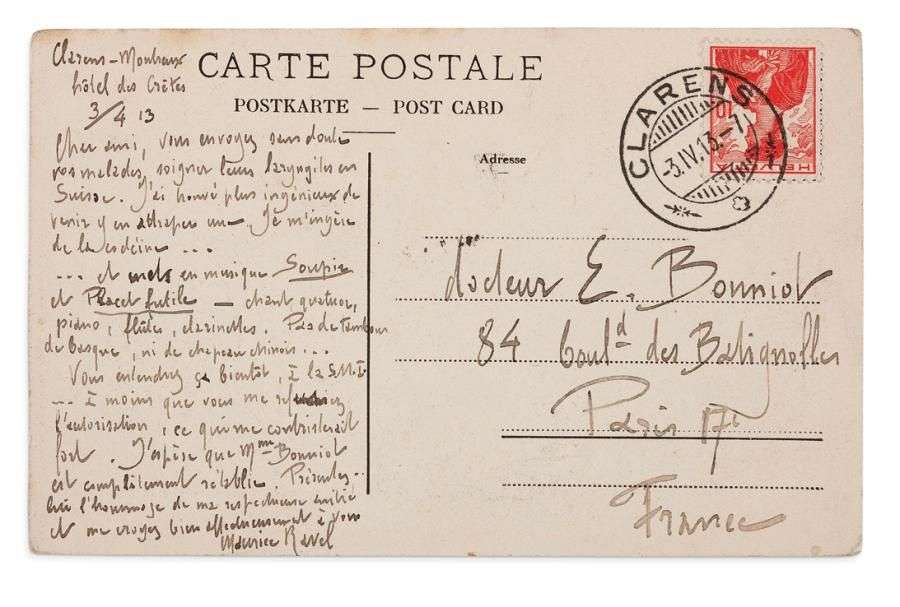 Clarens-Montreux
hôtel des Crêtes
3/4 13
Cher ami, vous envoyez sans doute
vos malades soigner leurs laryngites en
Suisse. J'ai trouvé plus ingénieux de
venir y en attraper une. Je m'ingère
de la codéine ...
... et mets en musique Soupir
et Placet futile — chant quatuor,
piano, flûtes, clarinettes. Pas de tambour
de basque, ni de chapeau chinois ...
Vous entendrez ça bientôt, à la S.M.I.
... à moins que vous me refusiez
l'autorisation, ce qui me contristerait
fort. J'espère que Mme Bonniot
est complètement rétablie. Présentez-
lui l'hommage de ma respectueuse amitié
et me croyez bien affectueusement à vous
Maurice Ravel
CARTE POSTALE
POSTKARTE — POST CARD
Adresse
CLARENS
-3.IV.13.-7
10
HELVETIA
docteur E. Bonniot
84 boul^d des Batignolles
Paris 17e
France